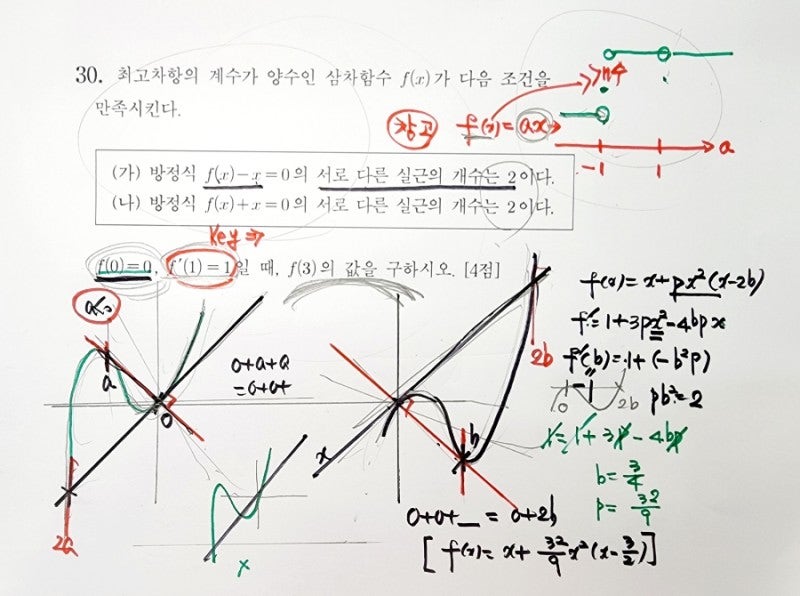 30. 최고차항의 계수가 양수인 삼차함수 f(x)가 다음 조건을
만족시킨다.
참고 f(x)=ax
개수
a
-1 1
(가) 방정식 f(x)-x=0의 서로 다른 실근의 개수는 2이다.
(나) 방정식 f(x)+x=0의 서로 다른 실근의 개수는 2이다.
Key⇒
f(0)=0, f′(1)=1일 때, f(3)의 값을 구하시오. [4점]
a<0
a
0
0+a+a
=0+0+
2a
x
x
b
2b
0+0+_=0+2b
[f(x)=x+32/9x²(x-3/2)]
f(x)=x+px²(x-2b)
f′=1+3px²-4bpx
f′(b)=1+(-b²p)
-1
0 2b
pb²=2
1=1+3p-4bp
b=3/4
p=32/9